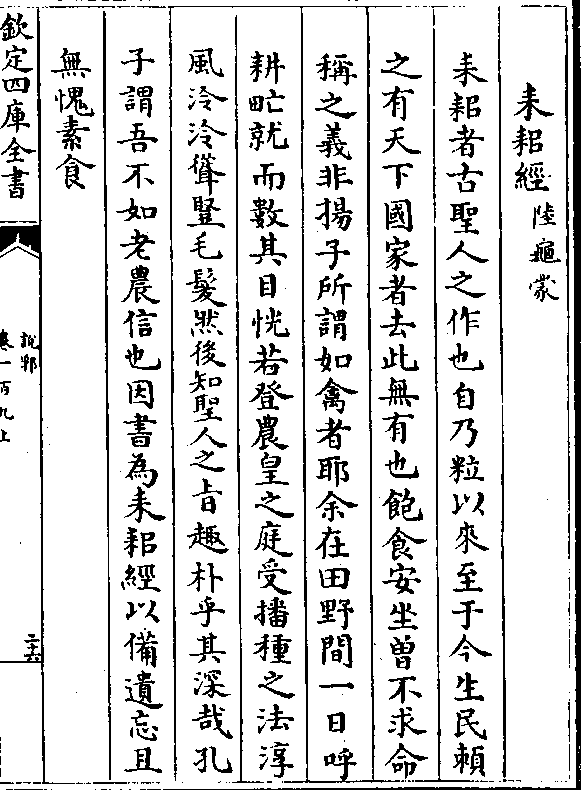 耒耜經 陸龜蒙
耒耜者古聖人之作也自乃粒以來至于今生民賴
之有天下國家者去此無有也飽食安坐曽不求命
稱之義非揚子所謂如禽者耶余在田野間一日呼
耕甿就而數其目恍若登農皇之庭受播種之法淳
風泠泠聳豎毛髮然後知聖人之㫖趣朴乎其深哉孔
子謂吾不如老農信也因書為耒耜經以備遺忘且
無愧素食
欽定四庫全書
説郛
卷一百九上
二十六